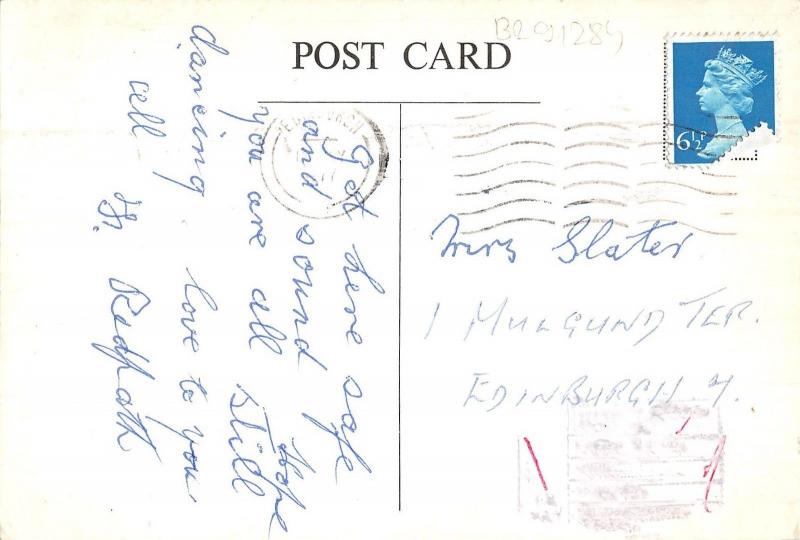 BR 91284
POST CARD
6½P
EDINBURGH
Got here safe
and sound Hope
you are all still
dancing love to you
all
Redpath
Mrs Slater
1 MULGUND TER.
EDINBURGH 7.